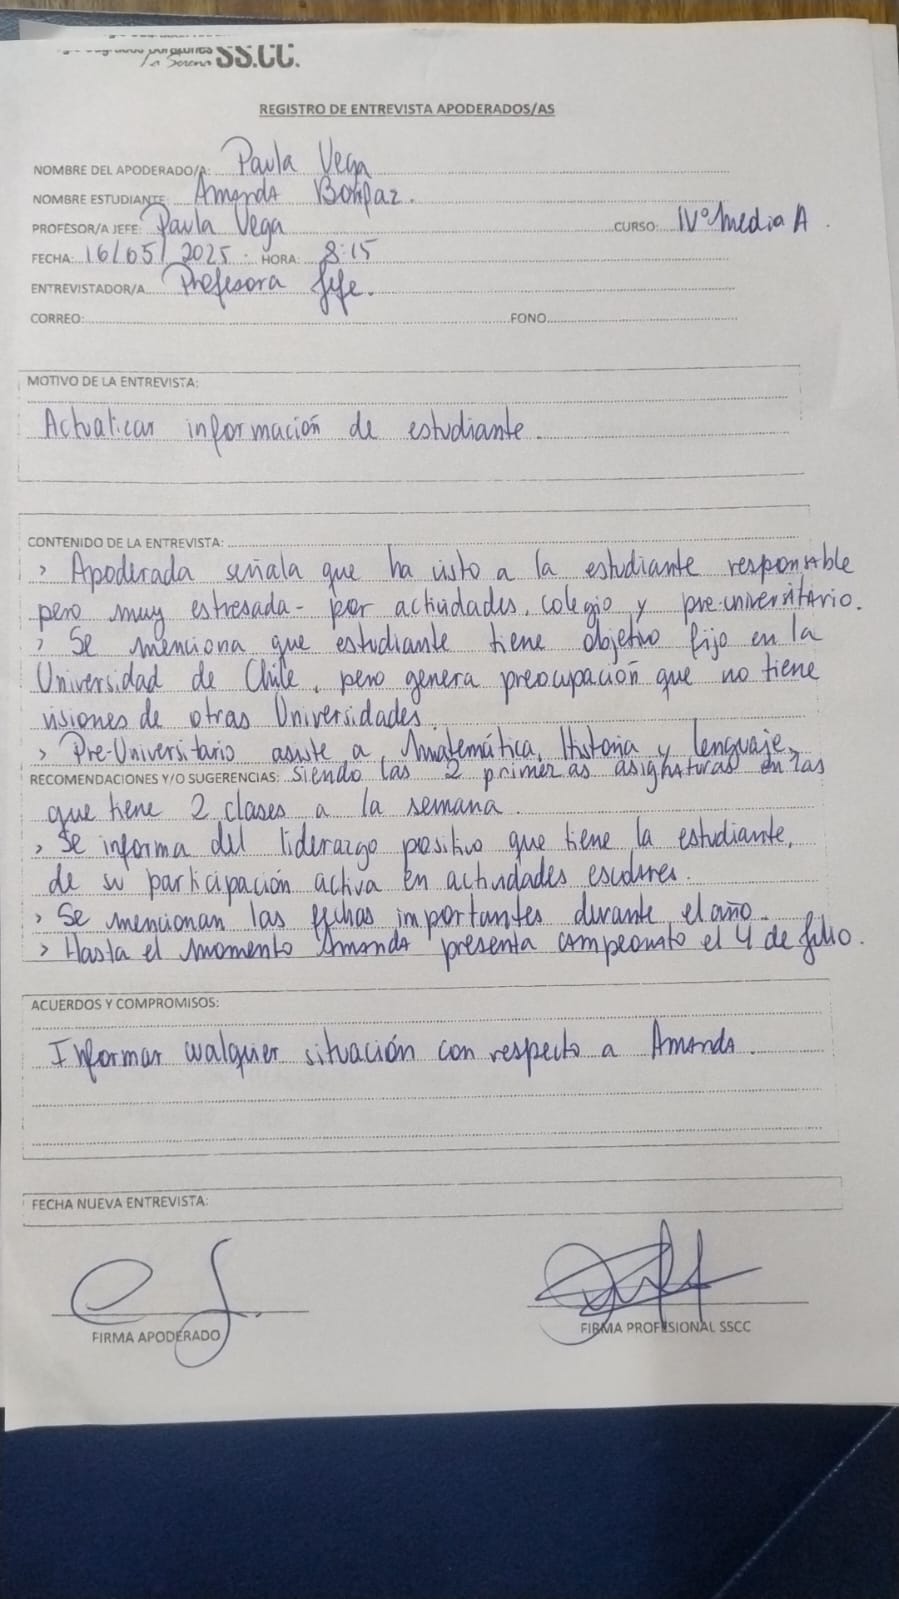 La Serena SS.CC.
REGISTRO DE ENTREVISTA APODERADOS/AS
NOMBRE DEL APODERADO/A: Paula Vega
NOMBRE ESTUDIANTE: Amanda
PROFESOR/A JEFE: Paula Vega CURSO: IVº Media A.
FECHA: 16/05/2025. HORA: 8:15
ENTREVISTADOR/A Profesora Jefe.
CORREO: FONO
MOTIVO DE LA ENTREVISTA:
Actualicar información de estudiante.
CONTENIDO DE LA ENTREVISTA:
> Apoderada señala que ha visto a la estudiante responsable
pero muy estresada - por actividades, colegio y pre-universitario.
> Se menciona que estudiante tiene objetivo fijo en la
Universidad de Chile, pero genera preocupación que no tiene
visiones de otras Universidades.
> Pre-Universitario asiste a Matemática, Historia y lenguaje,
RECOMENDACIONES Y/O SUGERENCIAS: siendo las 2 primeras asignaturas en las
que tiene 2 clases a la semana.
> Se informa del liderazgo positivo que tiene la estudiante,
de su participación activa en actividades escolares.
> Se mencionan las fechas importantes durante el año.
> Hasta el momento Amanda presenta campeonato el 4 de Julio.
ACUERDOS Y COMPROMISOS:
Informar cualquier situación con respecto a Amanda.
FECHA NUEVA ENTREVISTA:
FIRMA APODERADO
FIRMA PROFESIONAL SSCC